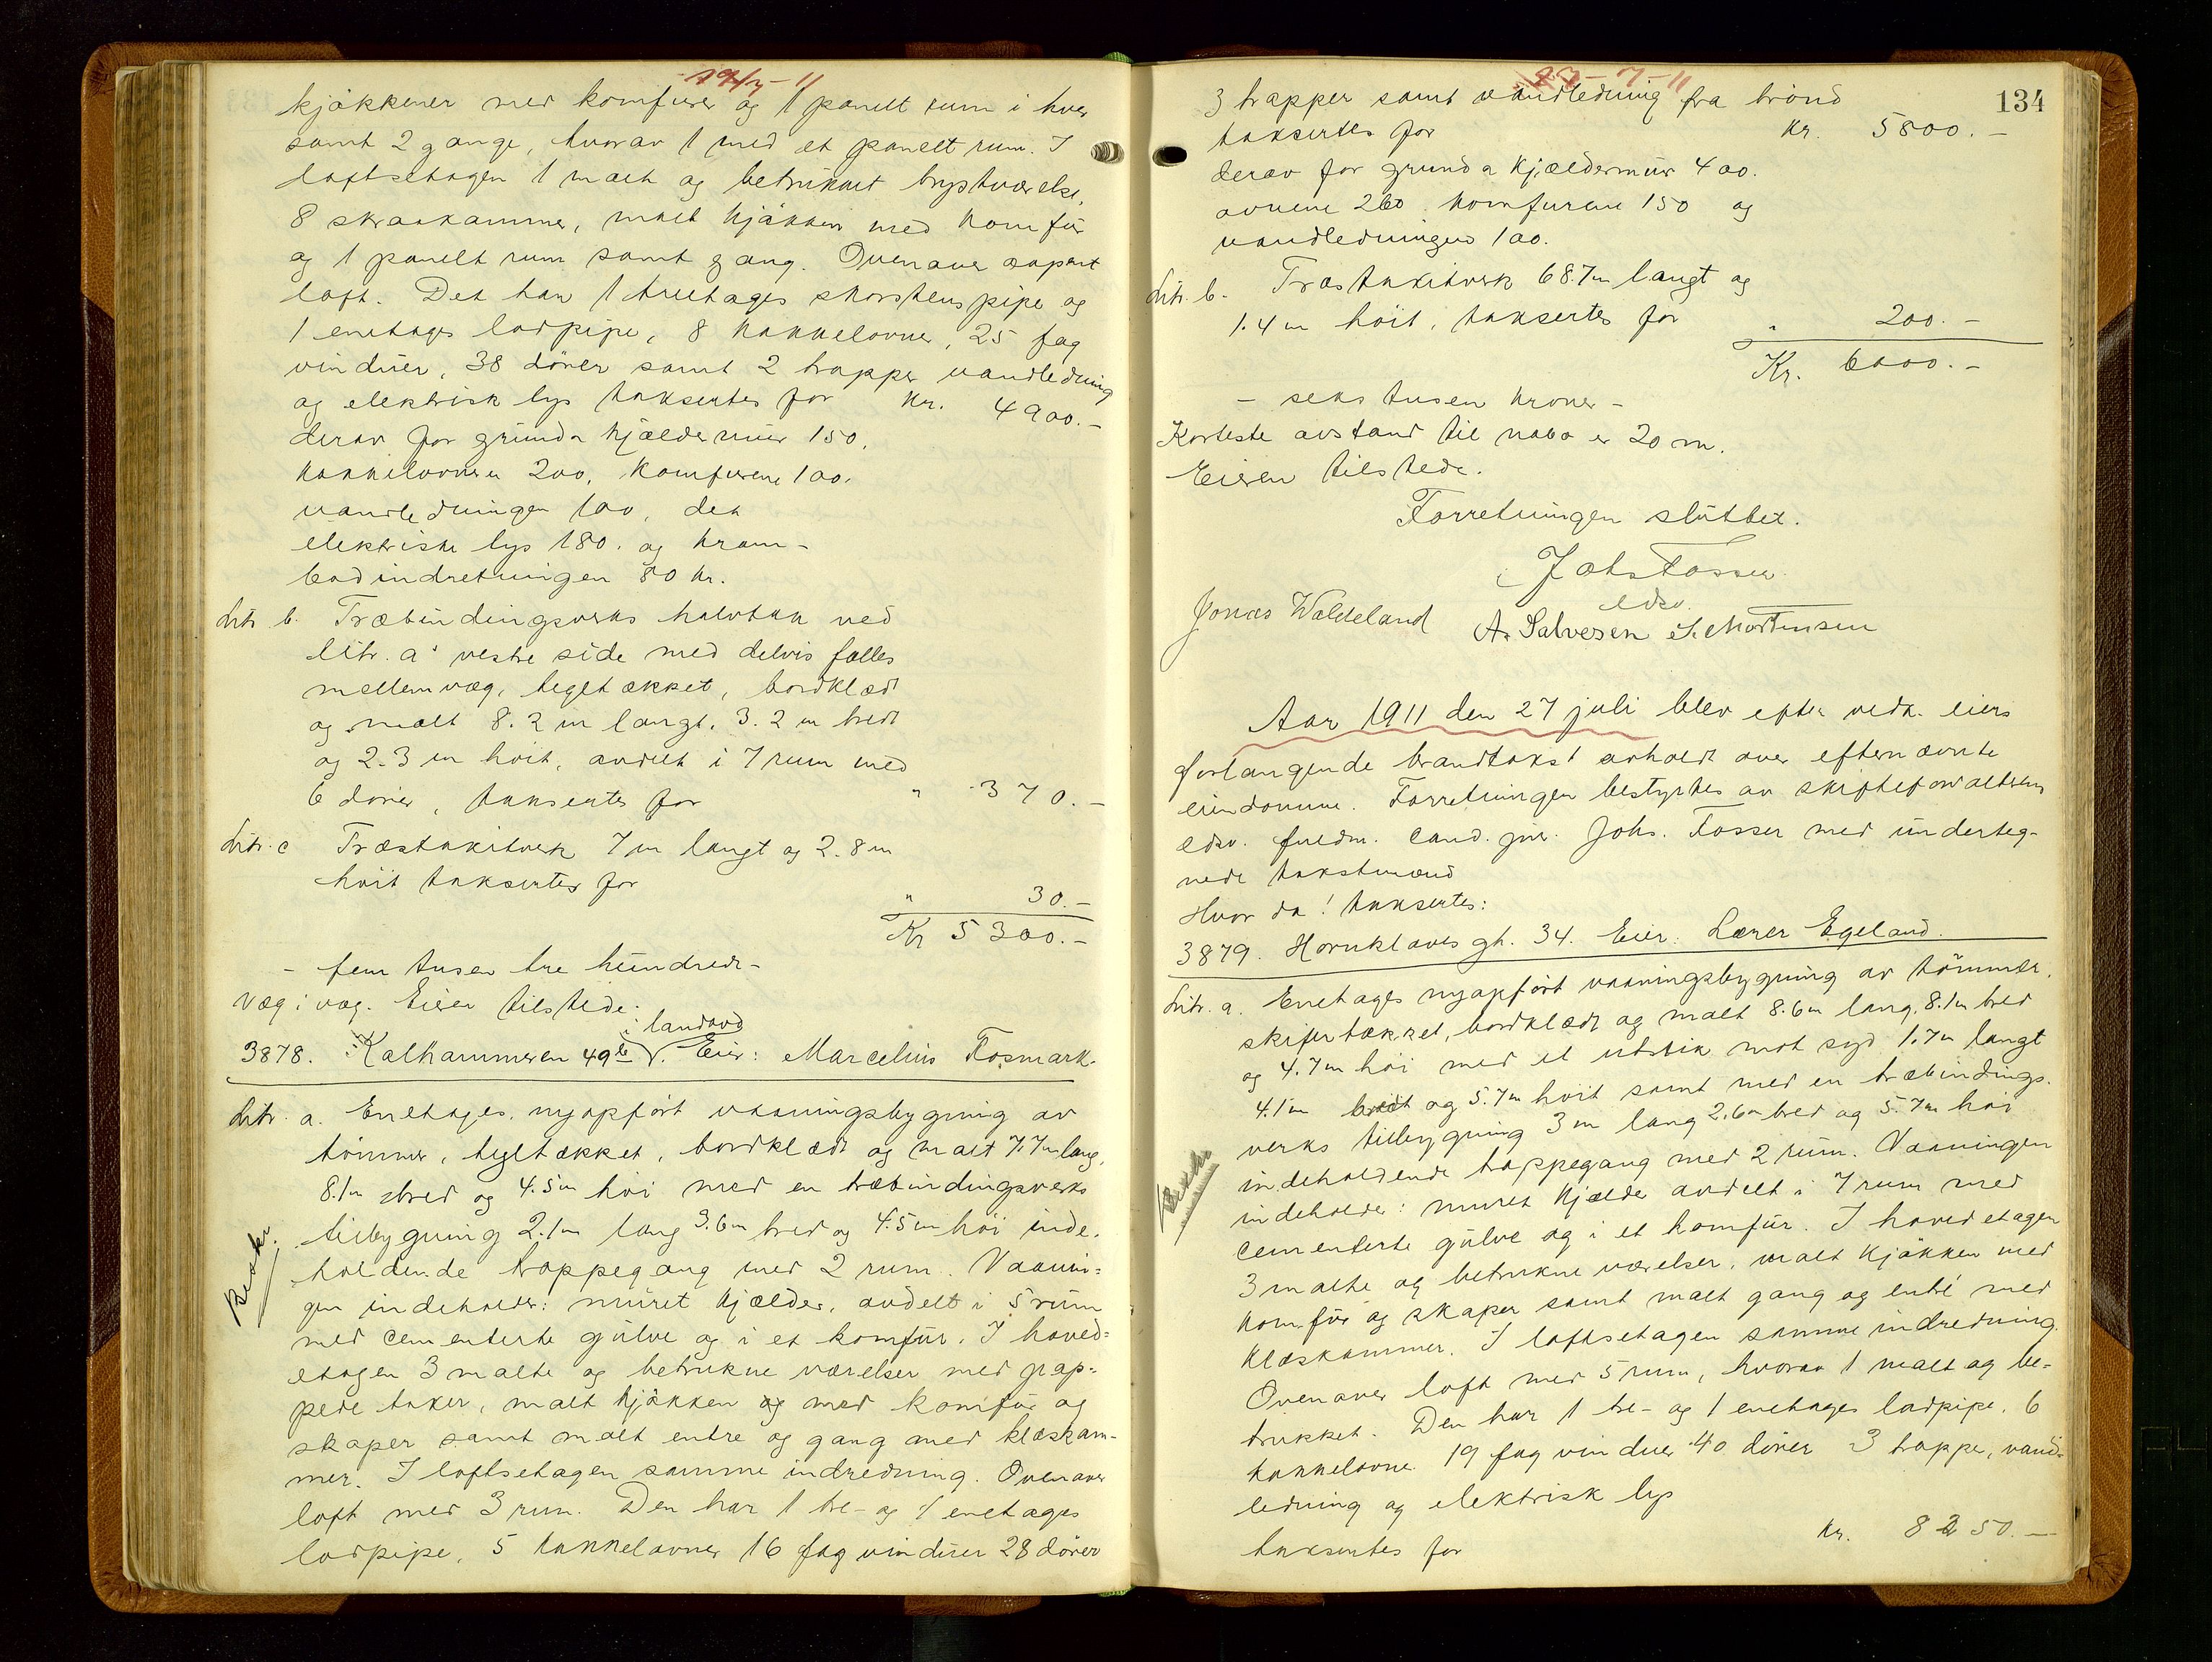 19/7 - 11
kjøkkener med komfurer og 1 panelt rum i hver
samt 2 gange, hvorav 1 med et panelt rum. I
loftsetagen 1 malt og betrukket kvistværelse,
8 skraakammer, malt kjøkken med komfür
og 1 panelt rum samt gang. Ovenover aapent
loft. Det har 1 treetages skorstenspipe og
1 enetages lodpipe, 8 kakkelovner, 25 fag
vinduer, 38 dører samt 2 trapper vandledning
og elektrisk lys taksertes for Kr. 4900.-
derav for grund & kjældermur 150,
kakkelovnene 200, komfurene 100,
vandledningen 100, det
elektriske lys 180. og kram-
bodindretningen 80 kr.
Litr. b. Træbindingsverks halvtak ved
litr. a's vestre side med delvis fælles
mellemvæg, tegltækket, bordklædt
og malt 8.2 m langt, 3.2 m bredt
og 2.3 m høit, avdelt i 7 rum med
6 dører, taksertes for " 370.-
Litr. c Træstakitverk 7 m langt og 2.8 m
høit taksertes for
" 30.-
Kr 5300.-
- fem tusen tre hundrede -
Væg i væg. Eier tilstede.
i landavd
3878. Kalhammeren 49 b. Eier: Marcelius Fosmark.
Litr. a. Enetages, nyopført vaaningsbygning av
tømmer, tegltækket, bordklædt og malt 7.7m lang,
8.1m bred og 4.5m høi med en træbindingsverks
tilbygning 2.1m lang 3.6m bred og 4.5m høi inde-
Beskr.
holdende trappegang med 2 rum. Vaanin-
gen indeholder: muret kjælder, avdelt i 5 rum
med cementerte gulve og i et komfür. I hoved-
etagen 3 malte og betrukne værelser med pap-
pede taker, malt kjøkken og med komfür og
skaper samt malt entre og gang med klæskam-
mer. I loftsetagen samme indredning. Ovenover
loft med 3 rum. Den har 1 tre- og 1 enetages
lodpipe, 5 kakkelovner 16 fag vinduer 28 dører
27 - 7 - 11
134
3 trapper samt vandledning fra brønd
taksertes for Kr. 5800.-
derav for grund & kjældermur 400.
ovnene 260. komfurene 150 og
vandledningen 100.
Litr. b. Træstakitverk 68.7m langt og
1.4 m høit, taksertes for " 200.-
Kr. 6000.-
- seks tusen kroner -
Korteste avstand til nabo er 20 m.
Eieren tilstede.
Forretningen sluttet.
Johs Fosser
edsv.
Jonas Waldeland A. Salvesen S. Mortensen
Aar 1911 den 27 juli blev efter vedk. eiers
forlangende brandtakst avholdt over efternævnte
eiendomme. Forretningen bestyrtes av skifteforvalterens
edsv. fuldm. cand. jur. Johs. Fosser med underteg-
nede takstmænd
Hvor da! taksertes:
3879. Hornklovesgt. 34. Eier: Lærer Egeland.
Litr. a. Enetages nyopført vaaningsbygning av tømmer,
skifertækket, bordklædt og malt 8.6m lang, 8.1m bred
og 4.7m høi med et utstik mot syd 1.7m langt
4.1m bredt og 5.7m høit samt med en træbindings-
verks tilbygning 3 m lang 2.6m bred og 5.7m høi
Beskr
indeholdende trappegang med 2 rum. Vaaningen
indeholder: muret kjælder avdelt i 7 rum med
cementerte gulve og i et komfür. I hovedetagen
3 malte og betrukne værelser, malt kjøkken med
komfür og skaper samt malt gang og entré med
klæskammer. I loftsetagen samme indredning.
Ovenover loft med 5 rum, hvorav 1 malt og be-
trukket. Den har 1 tre- og 1 enetages lodpipe, 6
kakkelovne 19 fag vinduer 40 dører 3 trapper, vand-
ledning og elektrisk lys
taksertes for Kr. 8250.-